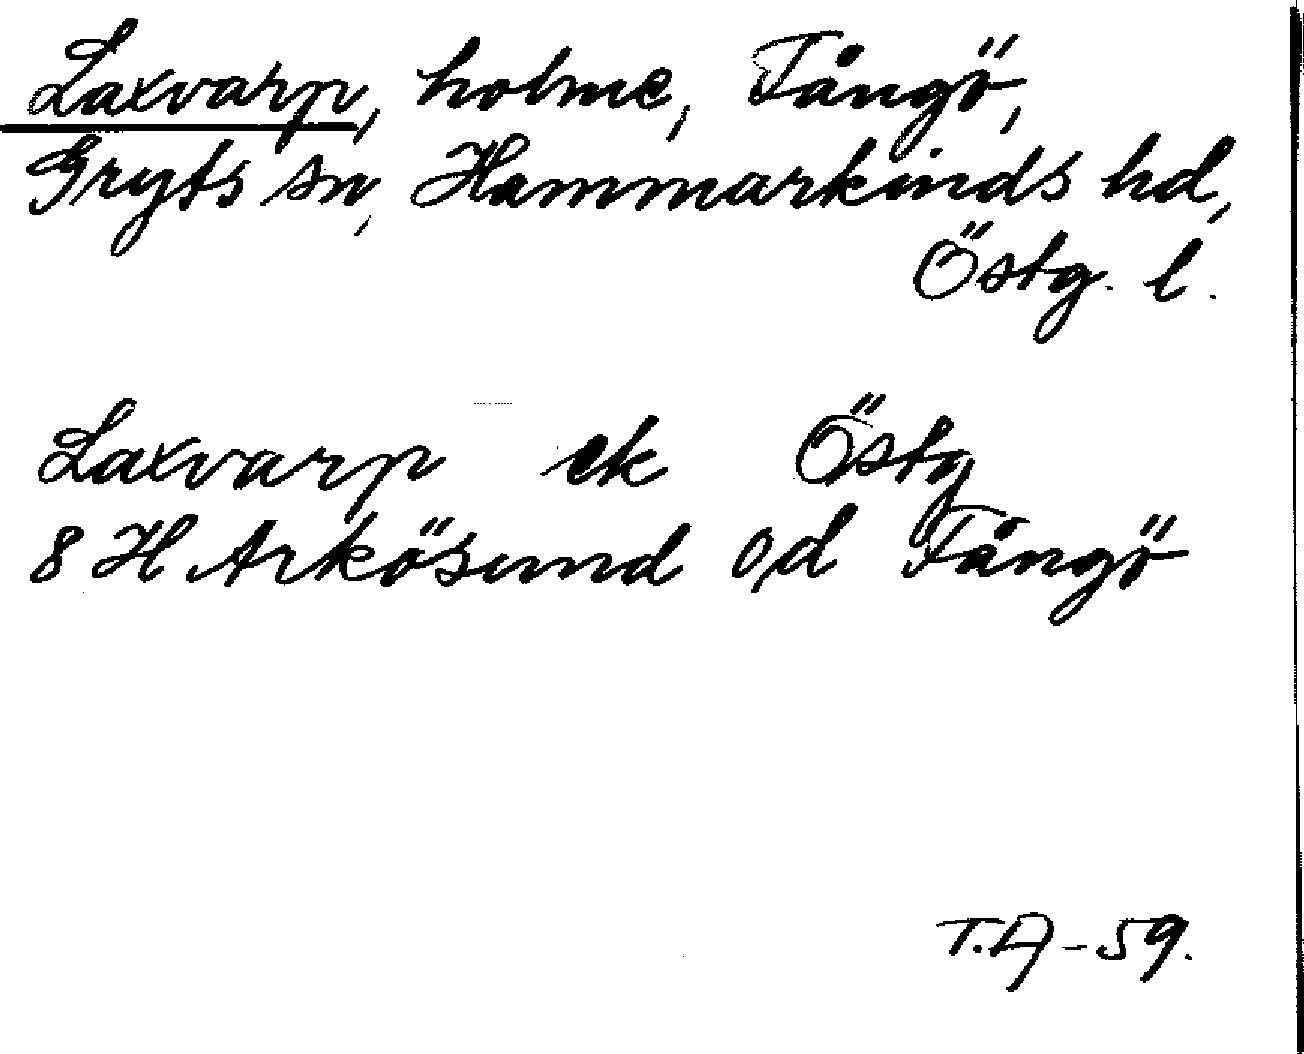 Laxvarp, holme, Fångö,
Gryts sn, Hammarkinds hd,
Östg. l.
Laxvarp ek Östg
8 H Arkösund o,d Fångö
T.A-59.